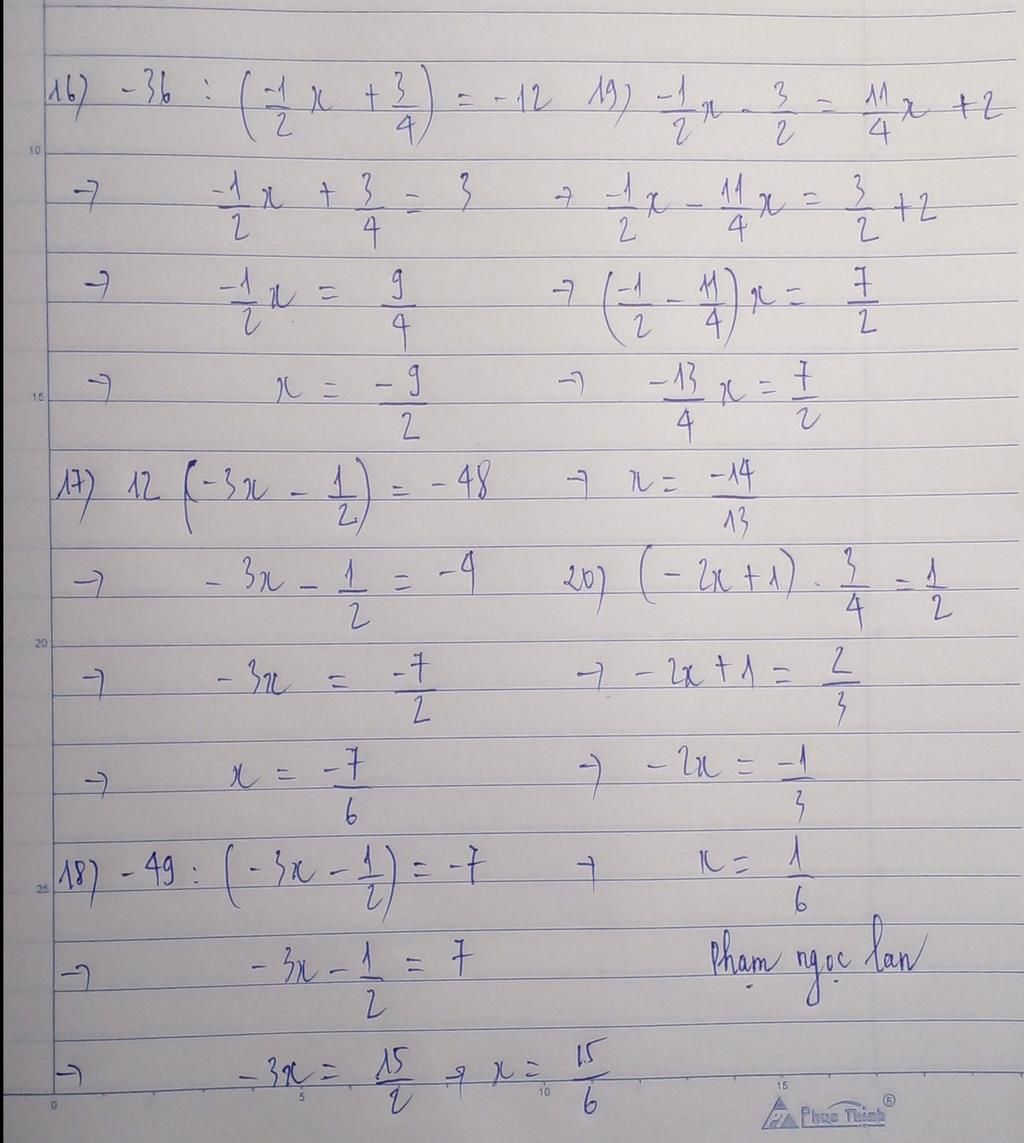 16) -36 : (-1/2 x + 3/4) = -12
→ -1/2 x + 3/4 = 3
→ -1/2 x = 9/4
→ x = -9/2
17) 12 (-3x - 1/2) = -48
→ -3x - 1/2 = -4
→ -3x = -7/2
→ x = -7/6
18) -49 : (-3x - 1/2) = -7
→ -3x - 1/2 = 7
→ -3x = 15/2 → x = 15/6
19) -1/2 x - 3/2 = 11/4 x + 2
→ -1/2 x - 11/4 x = 3/2 + 2
→ (-1/2 - 11/4) x = 7/2
→ -13/4 x = 7/2
→ x = -14/13
20) (-2x + 1) . 3/4 = 1/2
→ -2x + 1 = 2/3
→ -2x = -1/3
→ x = 1/6
Phạm ngọc lan
10
15
20
25
0 5 10 15
Phúc Thịnh ®